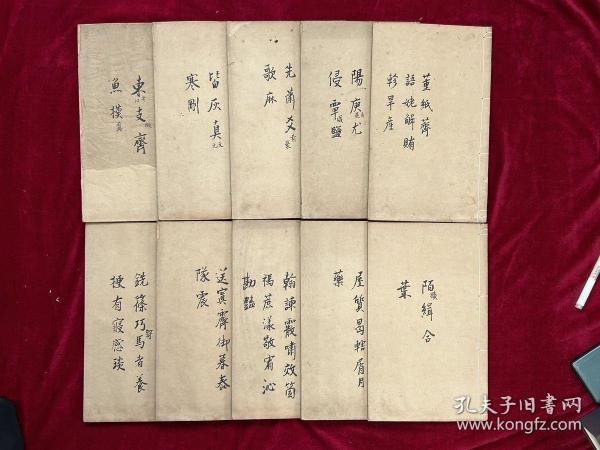 東支齊
魚模
皆灰真
寒刪
先蕭爻
歌麻
陽庚尤
侵覃鹽
董紙薺
語姥解賄
軫旱產
銑篠巧馬者養
梗有寢感琰
送寘霽御暮泰
隊震
翰諫霰嘯效箇
禡蔗漾敬宥沁
勘豔
屋質曷轄屑月
藥
陌緝合
葉
孔夫子旧书网
www.kongfz.com